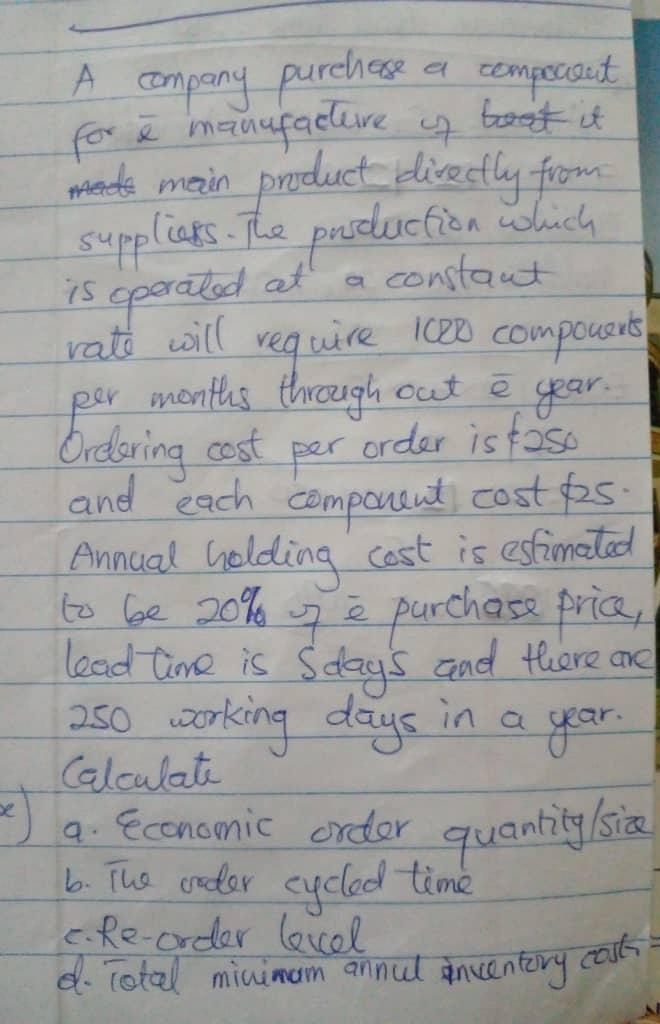 A company purchase a component
for ē manufacture of boat it
made main product directly from
suppliers. The production which
is operated at a constant
rate will require 1000 components
per months through out ē year.
Ordering cost per order is $250
and each component cost $25.
Annual holding cost is estimated
to be 20% of ē purchase price,
lead time is 5 days and there are
250 working days in a year.
Calculate
a. Economic order quantity/size
b. The order cycled time
c. Re-order level
d. Total minimum annul inventory cost